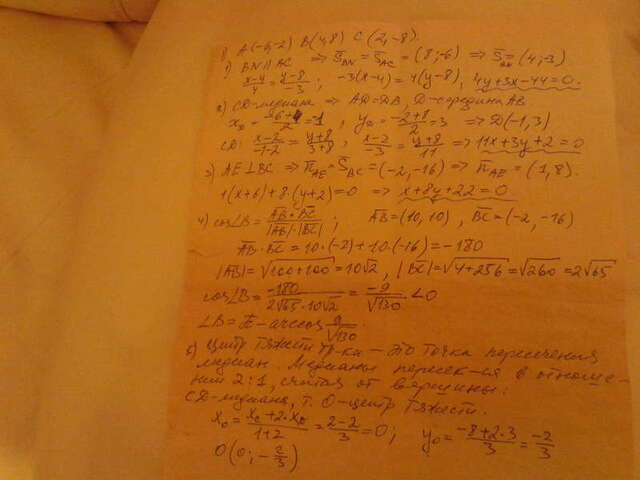 1) A(-6,-2) B(4,8) C(2,-8).
1) BN || AC => S̅BN = S̅AC = (8;-6) => S̅BN = (4;-3)
(x-4)/4 = (y-8)/-3 ; -3(x-4)=4(y-8), 4y+3x-44=0.
2) CD-медиана => AD=DB, D-середина AB.
xD = (-6+4)/2 = -1 , yD = (-2+8)/2 = 3 => D(-1,3)
CD: (x-2)/(-1-2) = (y+8)/(3+8) , (x-2)/-3 = (y+8)/11 => 11x+3y+2=0
3) AE⊥BC => n̅AE = S̅BC = (-2,-16) => n̅AE = (1,8).
1(x+6)+8·(y+2)=0 => x+8y+22=0
4) cos∠B = A̅B̅·B̅C̅/|A̅B̅|·|B̅C̅| ; A̅B̅=(10,10) , B̅C̅=(-2,-16)
A̅B̅·B̅C̅=10·(-2)+10·(-16)=-180
|A̅B̅|=√(100+100)=10√2, |B̅C̅|=√(4+256)=√260=2√65
cos∠B = -180/(2√65·10√2) = -9/√130 <0
∠B = π - arccos 9/√130.
5) Центр тяжести тр-ка - это точка пересечения
медиан. Медианы пересек-ся в отноше-
нии 2:1, считая от вершины:
CD-медиана, т. O-центр тяжести.
x0 = (xC+2·xD)/(1+2) = (2-2)/3 = 0; y0 = (-8+2·3)/3 = -2/3
O(0;-2/3)